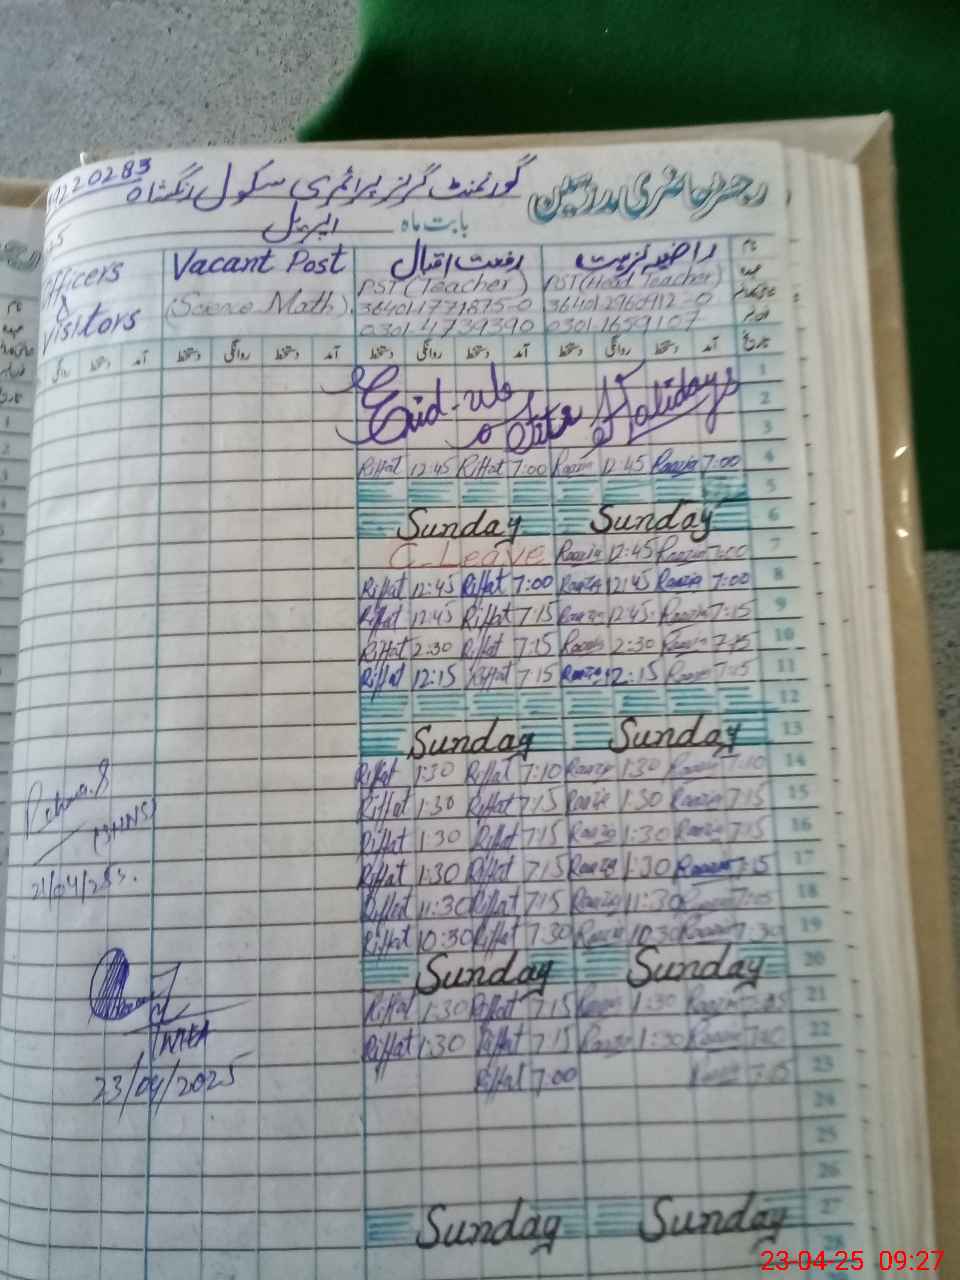 رجسٹر حاضری مدرسین
گورنمنٹ گرلز پرائمری سکول
20283
بابت ماہ اپریل
راضیہ نزہت رفعت اقبال Vacant Post Officers
PST (Head Teacher) PST (Teacher) (Science Math) &
visitors
0301-1659107 0301-4739390
تاریخ آمد دستخط روانگی دستخط آمد دستخط روانگی دستخط آمد دستخط روانگی دستخط آمد دستخط روانگی
1
Eid-ul-Fitr Holidays 2
3
Riffat 12:45 Riffat 7:00 Raazia 12:45 Raazia 7:00 4
5
Sunday Sunday 6
C. Leave Raazia 12:45 Raazia 7:00 7
Riffat 12:45 Riffat 7:00 Raazia 12:45 Raazia 7:00 8
Riffat 12:45 Riffat 7:15 Raazia 12:45 Raazia 7:15 9
Riffat 2:30 Riffat 7:15 Raazia 2:30 Raazia 7:15 10
Riffat 12:15 Riffat 7:15 Raazia 12:15 Raazia 7:15 11
12
Sunday Sunday 13
Riffat 1:30 Riffat 7:10 Raazia 1:30 Raazia 7:10 14
Riffat 1:30 Riffat 7:15 Raazia 1:30 Raazia 7:15 15
Riffat 1:30 Riffat 7:15 Raazia 1:30 Raazia 7:15 16
Riffat 1:30 Riffat 7:15 Raazia 1:30 Raazia 7:15 17
Riffat 11:30 Riffat 7:15 Raazia 11:30 Raazia 18
Riffat 10:30 Riffat 7:30 Raazia 10:30 Raazia 7:30 19
Sunday Sunday 20
Riffat 1:30 Riffat 7:15 Raazia 1:30 Raazia 21
Riffat 1:30 Riffat 7:15 Raazia 1:30 Raazia 22
Riffat 7:00 Raazia 7:15 23
24
25
26
Sunday Sunday 27
28
23/04/2025
23-04-25 09:27